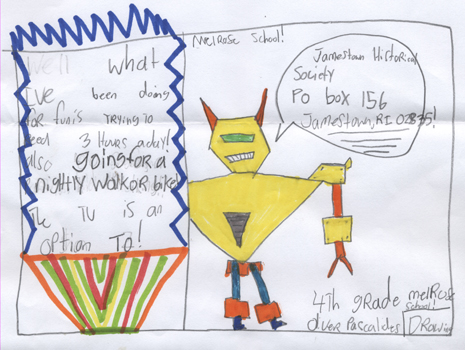 Well what
I'VE been doing
for fun is Trying to
reed 3 Hours a day!
also going for a
nightly walk or bike!
The TV is an
option TO!
MelRose School!
Jamestown Historical
Society
Po box 156
Jamestown, RI 02835!
4Th grade melRose
School!
Oliver Pascalides DRawing